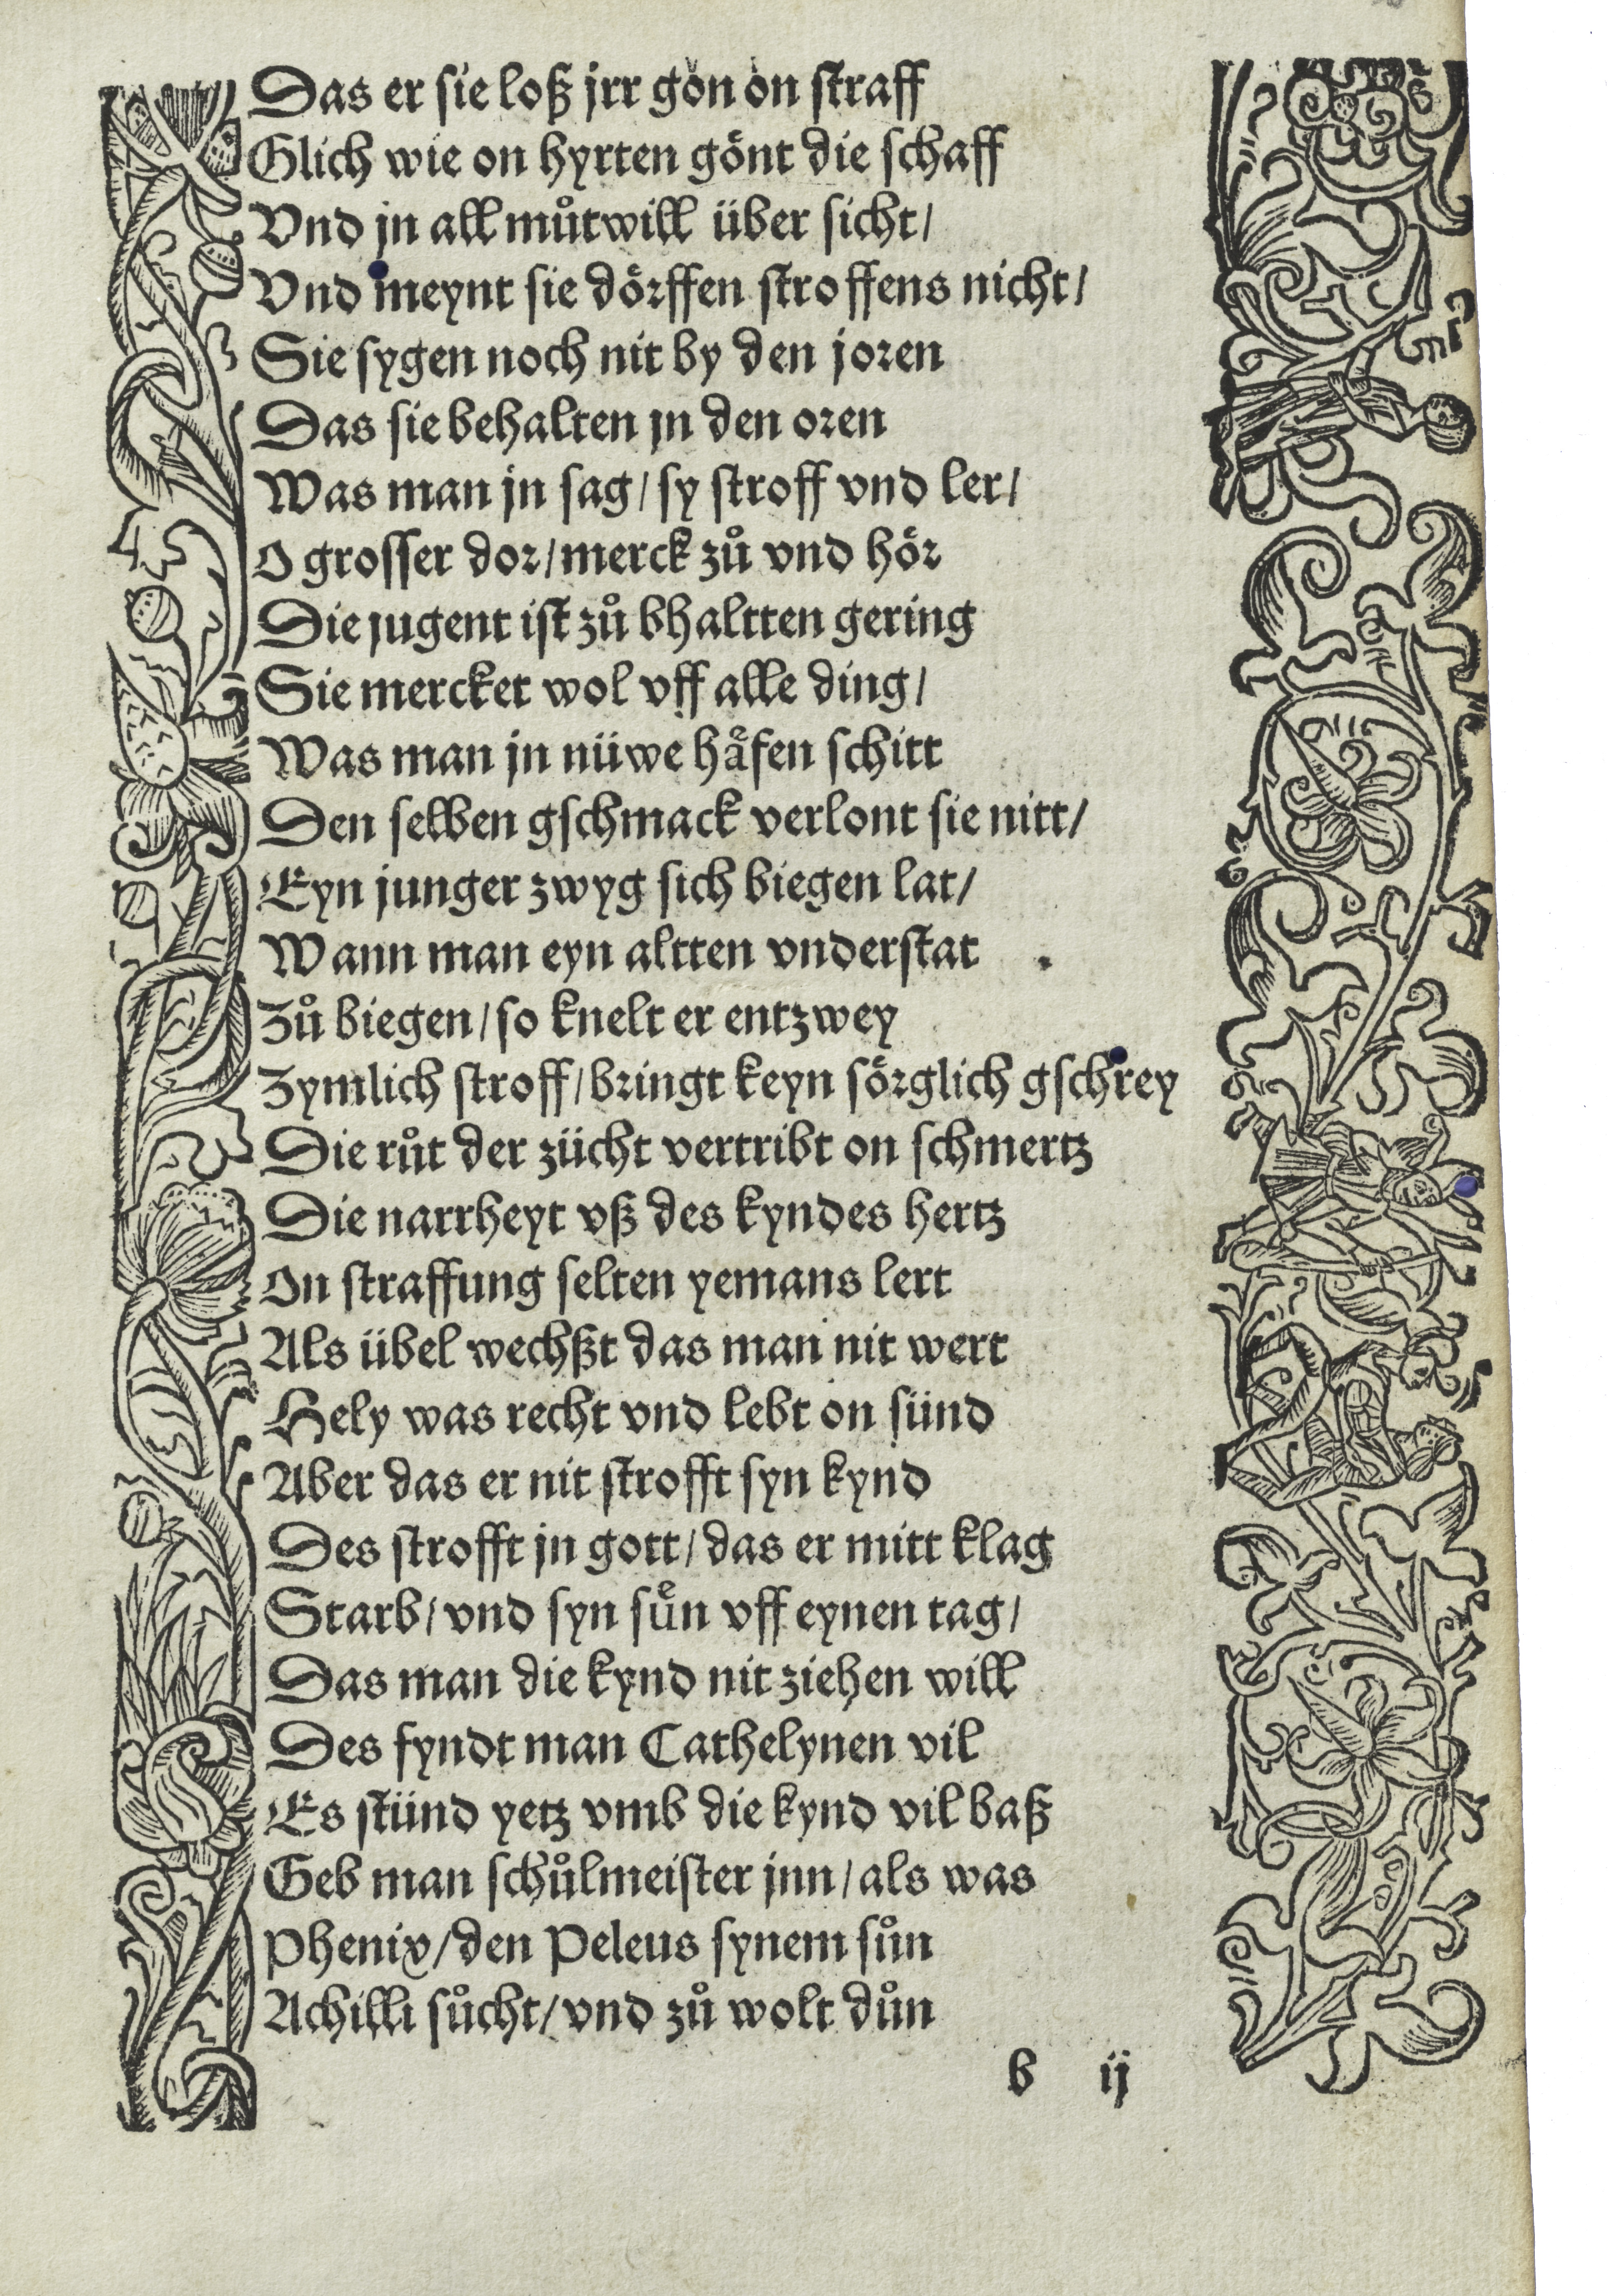 Das er sie loß jrr gon on straff
Glich wie on hyrten gönt die schaff
Vnd jn all můtwill über sicht/
Vnd meynt sie dörffen stroffens nicht/
Sie sygen noch nit by den joren
Das sie behalten jn den oren
Was man jn sag/ sy stroff vnd ler/
O grosser dor/ merck zů vnd hör
Die jugent ist zů bhaltten gering
Sie mercket wol vff alle ding/
Was man jn nüwe häfen schitt
Den selben gschmack verlont sie nitt/
Eyn junger zwyg sich biegen lat/
Wann man eyn altten vnderstat
Zů biegen/ so knelt er entzwey
Zymlich stroff/ bringt keyn sörglich gschrey
Die růt der zücht vertribt on schmertz
Die narrheyt vß des kyndes hertz
On straffung selten yemans lert
Als übel wechßt das man nit wert
Hely was recht vnd lebt on sünd
Aber das er nit strofft syn kynd
Des strofft jn gott/ das er mitt klag
Starb/ vnd syn sün vff eynen tag/
Das man die kynd nit ziehen will
Des fyndt man Cathelynen vil
Es stünd yetz vmb die kynd vil baß
Geb man schůlmeister jnn/ als was
Phenix/ den Peleus synem sůn
Achilli sůcht/ vnd zů wolt důn
b ij